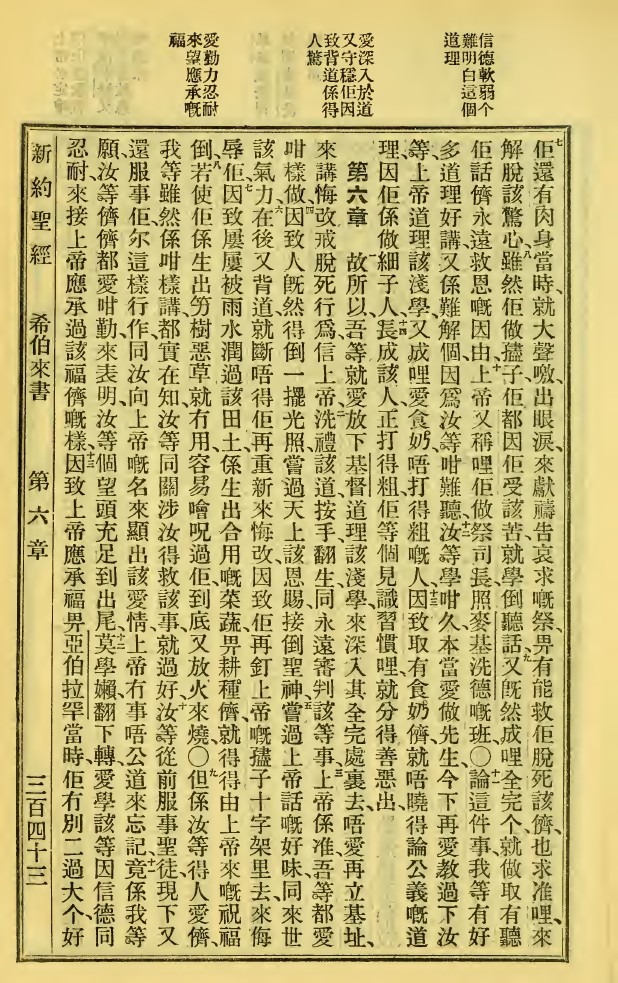 信德軟弱个
難明白這個
道理
愛深入於道
又守穩佢因
致背道係得
人驚
愛勤力忍耐
來望應承嘅
福
七佢還有肉身當時、就大聲噭出眼淚、來獻禱告哀求嘅祭、畀有能救佢脫死該儕也求准哩、來
解脫該驚心、八雖然佢做孻子、佢都因佢受該苦、就學倒聽話、九又既然成哩全完个、就做取有聽
佢話儕永遠救恩嘅因由、十上帝又稱哩佢做祭司長、照麥基洗德嘅班〇十一論這件事、我等有好
多道理好講、又係難解個、因爲汝等咁難聽、十二汝等學咁久、本當愛做先生、今下再愛教過下汝
等上帝道理該淺學、又成哩愛食奶、唔打得粗嘅人、十三因致取有食奶儕、就唔曉得論公義嘅道
理、因佢係做細子人、十四長成該人、正打得粗、佢等個見識習慣哩、就分得善惡出、
第六章 一故所以吾等就愛放下基督道理該淺學、來深入其全完處裏去、唔愛再立基址、
來講悔改戒脫死行爲、信上帝、二洗禮該道、按手、翻生、同永遠審判該等事、三上帝係准、吾等都愛
咁樣做、四因致人既然得倒一擺光照、嘗過天上該恩賜、接倒聖神、五嘗過上帝話嘅好味、同來世
該氣力、六在後又背道、就斷唔得佢再重新來悔改、因致佢再釘上帝嘅孻子十字架里去、來侮
辱佢、七因致屢屢被雨水潤過該田土、係生出合用嘅菜蔬、畀耕種儕、就得得由上帝來嘅祝福
倒、八若使佢係生出竻樹惡草、就冇用、容易噲呪過佢、到底又放火來燒〇九但係汝等得人愛儕、
我等雖然係咁樣講、都實在知汝等同關涉汝得救該事、就過好、十汝等從前服事聖徒、現下又
還服事佢、尔這樣行作、同汝向上帝嘅名來顯出該愛情、上帝冇事唔公道來忘記、十一竟係我等
願汝等儕儕都愛咁勤、來表明汝等個望頭充足到出尾、十二莫學嬾翻下轉、愛學該等因信德同
忍耐、來接上帝應承過該福儕嘅樣、十三因致上帝應承福畀亞伯拉罕當時、佢冇別二過大个好
新約聖經 希伯來書 第六章 三百四十三